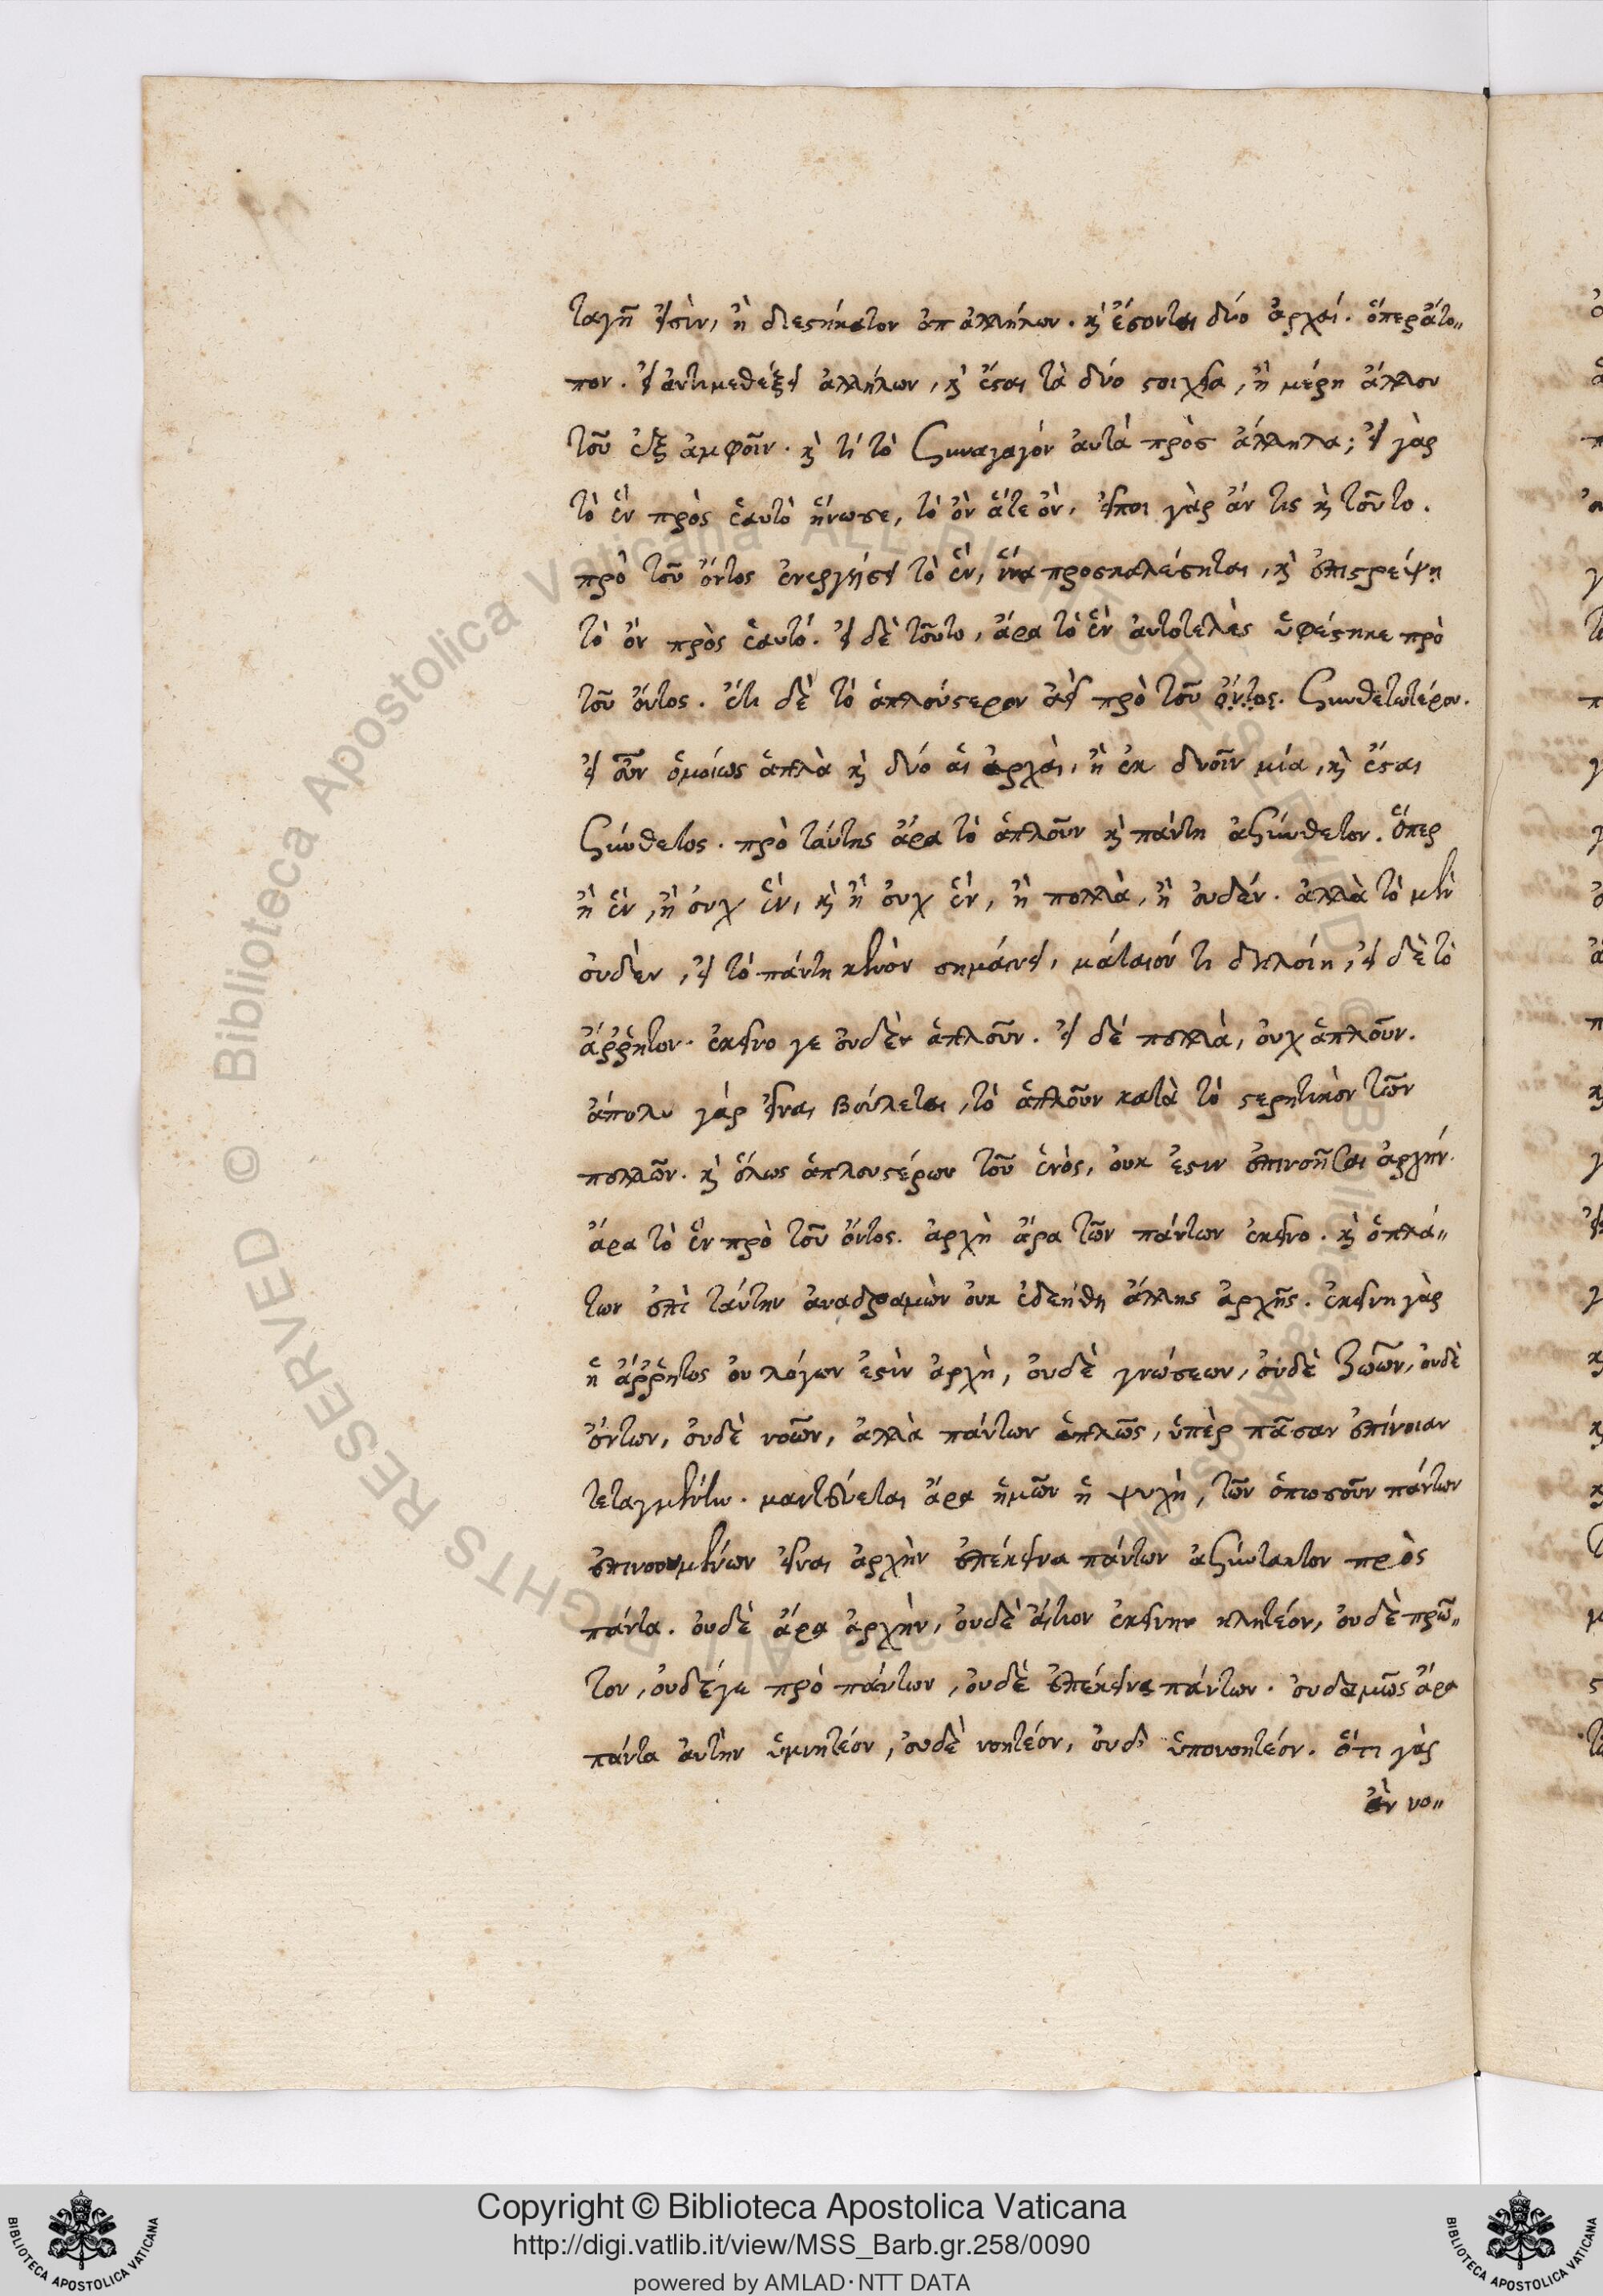 ταγῆ εἰσὶν, ἢ διεστήκατον ἀπ ἀλλήλων. κỳ ἔσονται δύο ἀρχαί. ὅπερ ἄτο„
πον. εἰ ἀντιμεθέξει ἀλλήλων, κỳ ἔσται τὰ δύο στοιχεῖα, ἢ μέρη ἄλλου
τοῦ ἐξ ἀμφοῖν. κỳ τί τὸ συναγαγόν αὐτὰ πρὸς ἄλληλα; εἰ γὰρ
τὸ ἓν πρὸς ἑαυτὸ ἥνωσε, τὸ ὂν ἅτε ὂν, εἴποι γὰρ ἄν τις κỳ τοῦτο.
πρὸ τοῦ ὄντος ἐνεργήσει τὸ ἓν, ἵνα προσκαλέσηται, κỳ ἐπιστρέψῃ
τὸ ὂν πρὸς ἑαυτό. εἰ δὲ τοῦτο, ἄρα τὸ ἓν αὐτοτελὲς ὑφέστηκε πρὸ
τοῦ ὄντος. ἔτι δὲ τὸ ἁπλούστερον ἀεὶ πρὸ τοῦ ὄντος. συνθετωτέρου.
εἰ οὖν ὁμοίως ἁπλᾶ κỳ δύο αἱ ἀρχαὶ, ἢ ἐκ δυοῖν μία, κỳ ἔσται
σύνθετος. πρὸ ταύτης ἄρα τὸ ἁπλοῦν κỳ πάντη ἀσύνθετον. ὅπερ
ἢ ἓν, ἢ οὐχ ἓν, κỳ ἢ οὐχ ἓν, ἢ πολλὰ, ἢ οὐδέν. ἀλλὰ τὸ μὲν
οὐδὲν, εἰ τὸ πάντη κενὸν σημαίνει, μάταιόν τι δηλοίη, εἰ δὲ τὸ
ἄῤῥητον. ἐκεῖνο γε οὐδὲν ἁπλοῦν. εἰ δέ πολλὰ, οὐχ ἁπλοῦν.
ἄπολυ γάρ εἶναι βούλεται, τὸ ἁπλοῦν κατὰ τὸ στερητικὸν τῶν
πολλῶν. κỳ ὅλως ἁπλουστέρων τοῦ ἑνὸς, οὐκ ἔστιν ἐπινοῆσαι ἀρχήν.
ἄρα τὸ ἓν πρὸ τοῦ ὄντος. ἀρχὴ ἄρα τῶν πάντων ἐκεῖνο. κỳ ὁ πλά„
των ἐπὶ ταύτην ἀναδραμὼν οὐκ ἐδεήθη ἄλλης ἀρχῆς. ἐκείνη γὰρ
ἡ ἄῤῥητος οὐ λόγων ἐστὶν ἀρχὴ, οὐδὲ γνώσεων, οὐδὲ ζώων, οὐδὲ
ὄντων, οὐδὲ νοῶν, ἀλλὰ πάντων ἁπλῶς, ὑπὲρ πᾶσαν ἐπίνοιαν
τεταγμένην. μαντεύεται ἄρα ἡμῶν ἡ ψυχὴ, τῶν ὁπωσοῦν πάντων
ἐπινοουμένων εἶναι ἀρχὴν ἐπέκεινα πάντων ἀσύντακτον πρὸς
πάντα. οὐδὲ ἄρα ἀρχὴν, οὐδὲ αἴτιον ἐκείνην κλητέον, οὐδὲ πρῶ„
τον, οὐδέ γε πρὸ πάντων, οὐδὲ ἐπέκεινα πάντων. οὐδαμῶς ἄρα
πάντα αὐτὴν ὑμνητέον, οὐδὲ νοητέον, οὐδ' ὑπονοητέον. ὅτι γὰρ
ἂν νο„
Copyright © Biblioteca Apostolica Vaticana
http://digi.vatlib.it/view/MSS_Barb.gr.258/0090
powered by AMLAD·NTT DATA